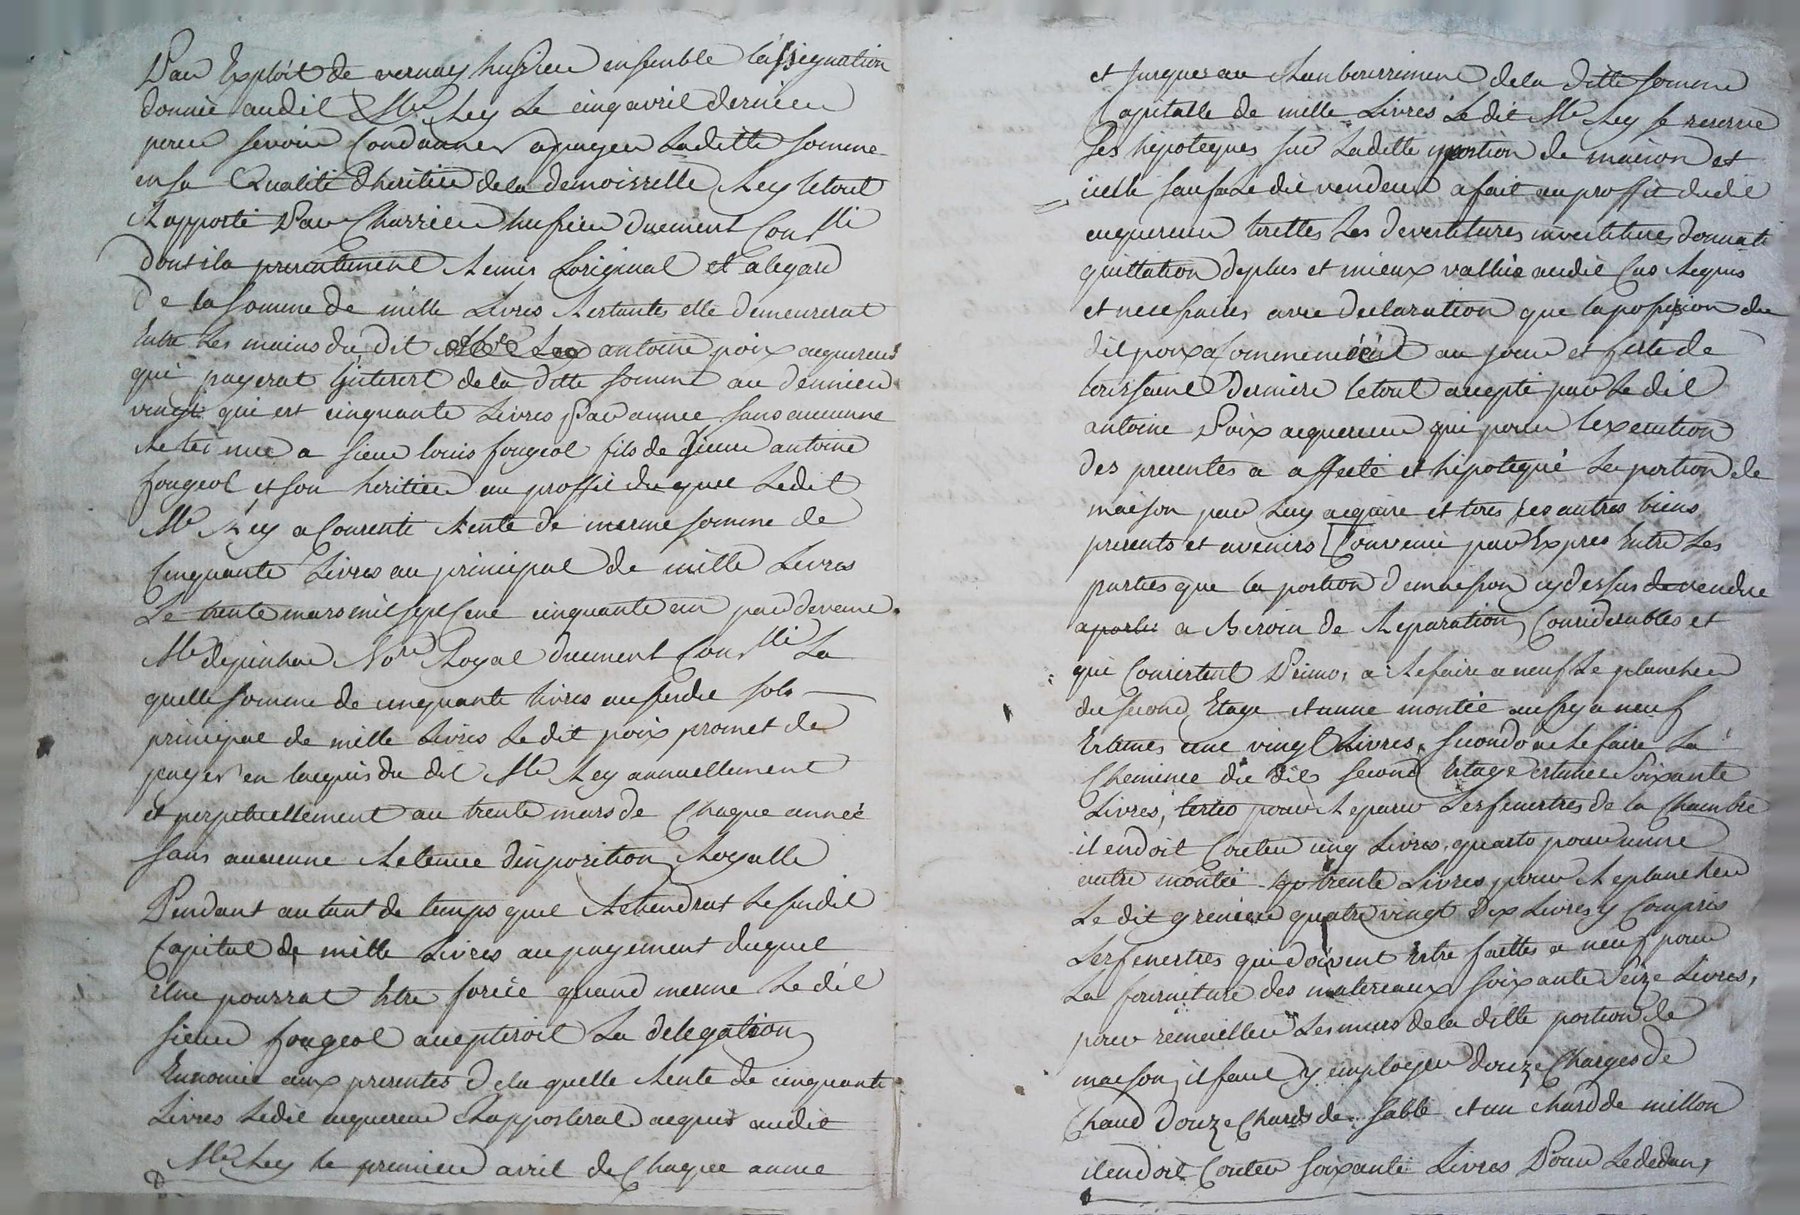 Par Exploit de vernay hussier ensemble lassignation
donnée audit Mre Rey Le cinq avril dernier
pour se voir Condanner a payer Laditte somme
en sa Qualité d'heritier de la demoiselle Rey le tout
Rapporté Par Charrier hussier duement Conllé
dont il a presentement Remis L'original et a legard
De la somme de mille Livres Restante elle demeurerat
Entre Les mains du dit antoine poix aquereur
qui payerat L'interest de la ditte somme au dennier
vingt qui est cinquante Livres Par année sans aucunne
Retenue a sieur louis fougeol fils de sieur antoine
fougeol et son heritier au proffit du quel Ledit
Mre Rey a Consenti Rente de mesme somme de
Cinquante Livres au principal de mille Livres
Le trente mars mil sept Cent cinquante un par devant
Me depinhac Nore Royal duement Conllé La
quelle somme de cinquante livres au susdit
principal de mille Livres Le dit poix promet de
payer en lacquis du dit Mre Rey annuellement
et perpetuellement au trente mars de Chaque année
sans aucunne Retenue d'inposition Royalle
Pendant autant de temps quil Retiendrat Le susdit
Capital de mille Livres au payement duquel
il ne pourrat Estre forcée quand mesme Le dit
sieur fougeol accepteroit La delegation
Ennoncée aux presentes De la quelle Rente de cinquante
Livres Ledit aquereur Rapporterat acquis audit
Mre Rey le premier avril de Chaque année
et Jusques au Ranboursement de la ditte somme
Capitalle de mille Livres Le dit Mre Rey se reserve
Ses hipoteques sur Laditte portion de maison et
icelle sauf Le dit vendeur a fait au proffit dudit
aquereur touttes Les devestitures investitures
quittation de plus et mieux vallue audit Cas Requis
et necessaires avec declaration que la possession du
dit poix a Commencé au jour et feste de
toussaint derniere le tout accepté par Le dit
antoine Poix aquereur qui pour l'execution
des presentes a affecté et hipotequé La portion de
maison par Luy acquise et tous ses autres biens
presents et avenirs Convenu par Expres Entre Les
parties que la portion de maison cy dessus de vendue
a besoin de Reparations Considerables et
qui Consistent Primo, a Refaire a neuf Le plancher
du second Etage et une montée aussy a neuf
Estimés cent vingt Livres, secondo a Refaire La
Cheminée du dit second Estage estimée soixante
Livres, tertio pour Reparer Les fenestres de la Chambre
il en doit Couter cinq Livres, quarto pour une
autre montée trente Livres, pour Replancher
Le dit grenier quatre vingt dix Livres y Compris
Les fenestres qui doivent Estre faittes a neuf pour
La fourniture des matereaux soixante seize Livres,
pour remailler Les murs de la ditte portion de
maison, il faut y employer douze Charges de
Chaud douze Chards de sable et un chard de millon
il en doit Couter soixante Livres Pour Le dedans,